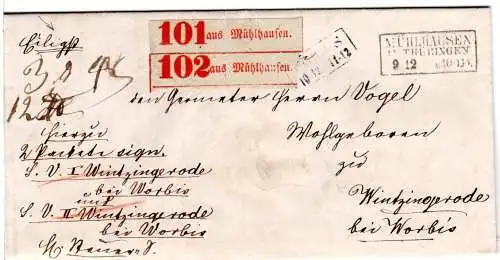 Eiligst
101 aus Mühlhausen.
102 aus Mühlhausen.
MÜHLHAUSEN
IN THÜRINGEN
9 12
10 12 11-12
den Geometer Herrn Vogel
Wohlgeboren
zu
Wintzingerode
bei Worbis
hierzu
2 Packete sign.
S. V. I Wintzingerode
bei Worbis
und
S. V. II Wintzingerode
bei Worbis